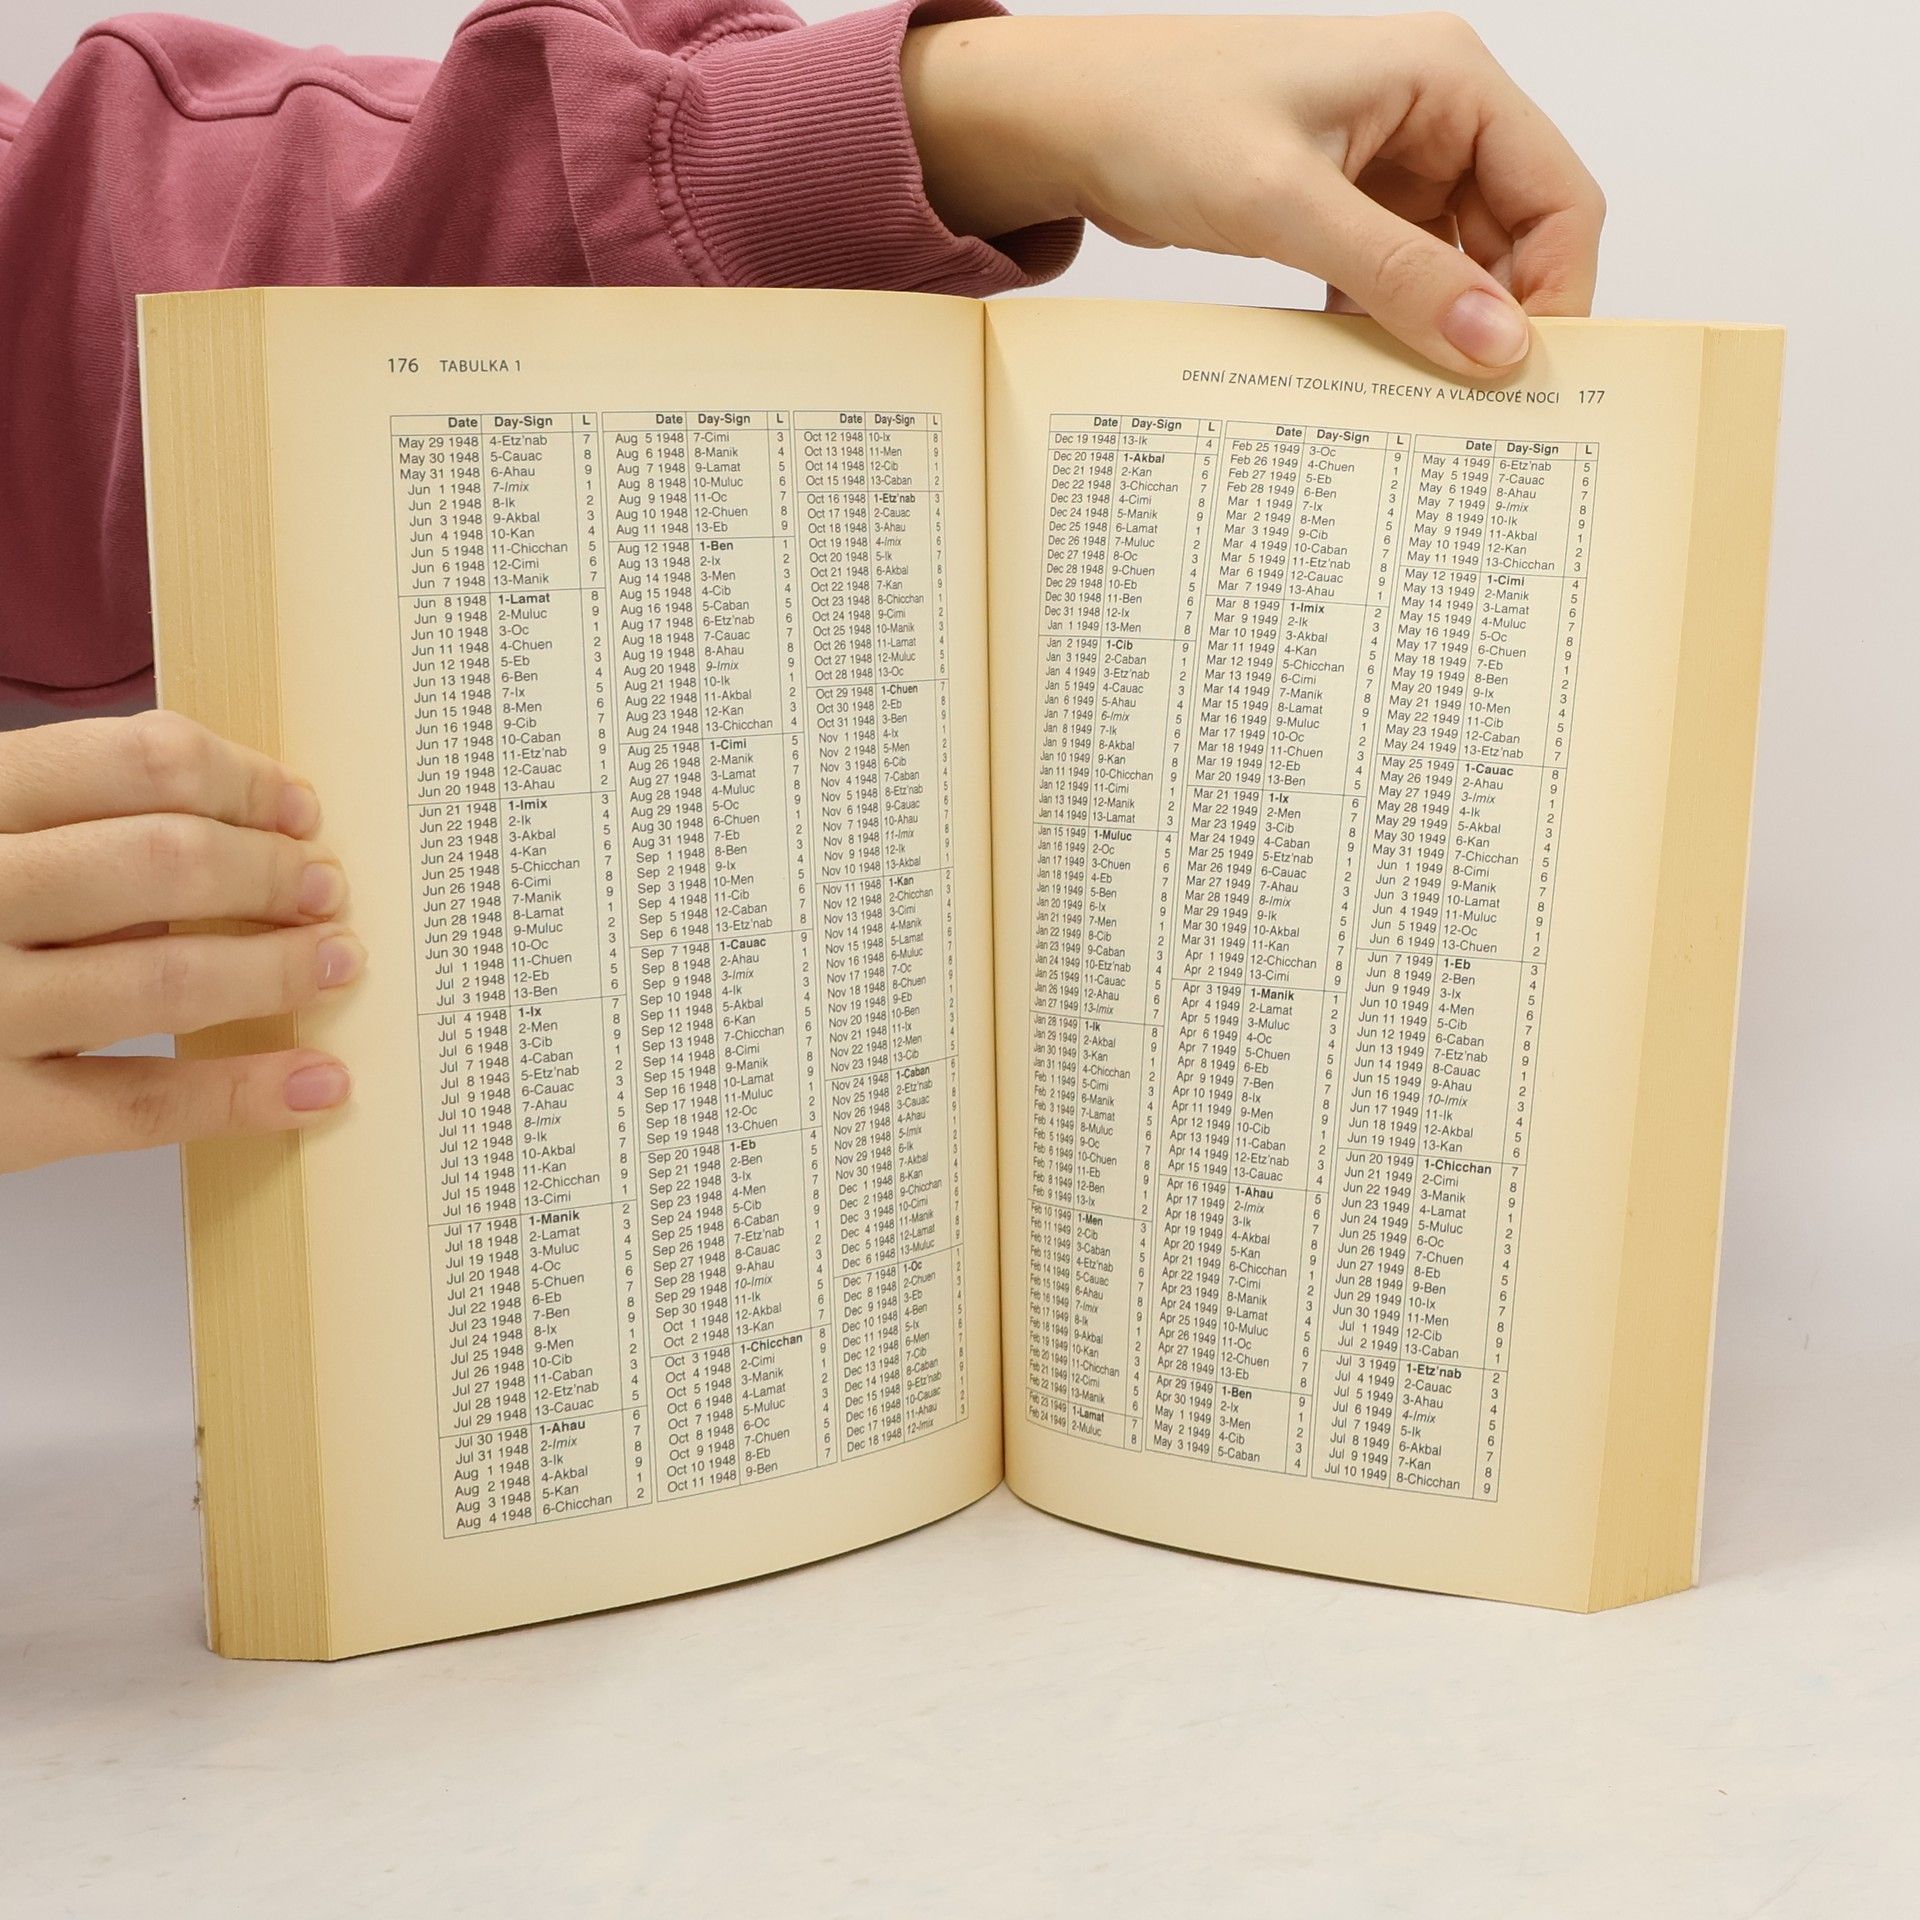 176 TABULKA 1
Date Day-Sign L
May 29 1948 4-Etz'nab 7
May 30 1948 5-Cauac 8
May 31 1948 6-Ahau 9
Jun 1 1948 7-Imix 1
Jun 2 1948 8-Ik 2
Jun 3 1948 9-Akbal 3
Jun 4 1948 10-Kan 4
Jun 5 1948 11-Chicchan 5
Jun 6 1948 12-Cimi 6
Jun 7 1948 13-Manik 7
Jun 8 1948 1-Lamat 8
Jun 9 1948 2-Muluc 9
Jun 10 1948 3-Oc 1
Jun 11 1948 4-Chuen 2
Jun 12 1948 5-Eb 3
Jun 13 1948 6-Ben 4
Jun 14 1948 7-Ix 5
Jun 15 1948 8-Men 6
Jun 16 1948 9-Cib 7
Jun 17 1948 10-Caban 8
Jun 18 1948 11-Etz'nab 9
Jun 19 1948 12-Cauac 1
Jun 20 1948 13-Ahau 2
Jun 21 1948 1-Imix 3
Jun 22 1948 2-Ik 4
Jun 23 1948 3-Akbal 5
Jun 24 1948 4-Kan 6
Jun 25 1948 5-Chicchan 7
Jun 26 1948 6-Cimi 8
Jun 27 1948 7-Manik 9
Jun 28 1948 8-Lamat 1
Jun 29 1948 9-Muluc 2
Jun 30 1948 10-Oc 3
Jul 1 1948 11-Chuen 4
Jul 2 1948 12-Eb 5
Jul 3 1948 13-Ben 6
Jul 4 1948 1-Ix 7
Jul 5 1948 2-Men 8
Jul 6 1948 3-Cib 9
Jul 7 1948 4-Caban 1
Jul 8 1948 5-Etz'nab 2
Jul 9 1948 6-Cauac 3
Jul 10 1948 7-Ahau 4
Jul 11 1948 8-Imix 5
Jul 12 1948 9-Ik 6
Jul 13 1948 10-Akbal 7
Jul 14 1948 11-Kan 8
Jul 15 1948 12-Chicchan 9
Jul 16 1948 13-Cimi 1
Jul 17 1948 1-Manik 2
Jul 18 1948 2-Lamat 3
Jul 19 1948 3-Muluc 4
Jul 20 1948 4-Oc 5
Jul 21 1948 5-Chuen 6
Jul 22 1948 6-Eb 7
Jul 23 1948 7-Ben 8
Jul 24 1948 8-Ix 9
Jul 25 1948 9-Men 1
Jul 26 1948 10-Cib 2
Jul 27 1948 11-Caban 3
Jul 28 1948 12-Etz'nab 4
Jul 29 1948 13-Cauac 5
Jul 30 1948 1-Ahau 6
Jul 31 1948 2-Imix 7
Aug 1 1948 3-Ik 8
Aug 2 1948 4-Akbal 9
Aug 3 1948 5-Kan 1
Aug 4 1948 6-Chicchan 2
Date Day-Sign L
Aug 5 1948 7-Cimi 3
Aug 6 1948 8-Manik 4
Aug 7 1948 9-Lamat 5
Aug 8 1948 10-Muluc 6
Aug 9 1948 11-Oc 7
Aug 10 1948 12-Chuen 8
Aug 11 1948 13-Eb 9
Aug 12 1948 1-Ben 1
Aug 13 1948 2-Ix 2
Aug 14 1948 3-Men 3
Aug 15 1948 4-Cib 4
Aug 16 1948 5-Caban 5
Aug 17 1948 6-Etz'nab 6
Aug 18 1948 7-Cauac 7
Aug 19 1948 8-Ahau 8
Aug 20 1948 9-Imix 9
Aug 21 1948 10-Ik 1
Aug 22 1948 11-Akbal 2
Aug 23 1948 12-Kan 3
Aug 24 1948 13-Chicchan 4
Aug 25 1948 1-Cimi 5
Aug 26 1948 2-Manik 6
Aug 27 1948 3-Lamat 7
Aug 28 1948 4-Muluc 8
Aug 29 1948 5-Oc 9
Aug 30 1948 6-Chuen 1
Aug 31 1948 7-Eb 2
Sep 1 1948 8-Ben 3
Sep 2 1948 9-Ix 4
Sep 3 1948 10-Men 5
Sep 4 1948 11-Cib 6
Sep 5 1948 12-Caban 7
Sep 6 1948 13-Etz'nab 8
Sep 7 1948 1-Cauac 9
Sep 8 1948 2-Ahau 1
Sep 9 1948 3-Imix 2
Sep 10 1948 4-Ik 3
Sep 11 1948 5-Akbal 4
Sep 12 1948 6-Kan 5
Sep 13 1948 7-Chicchan 6
Sep 14 1948 8-Cimi 7
Sep 15 1948 9-Manik 8
Sep 16 1948 10-Lamat 9
Sep 17 1948 11-Muluc 1
Sep 18 1948 12-Oc 2
Sep 19 1948 13-Chuen 3
Sep 20 1948 1-Eb 4
Sep 21 1948 2-Ben 5
Sep 22 1948 3-Ix 6
Sep 23 1948 4-Men 7
Sep 24 1948 5-Cib 8
Sep 25 1948 6-Caban 9
Sep 26 1948 7-Etz'nab 1
Sep 27 1948 8-Cauac 2
Sep 28 1948 9-Ahau 3
Sep 29 1948 10-Imix 4
Sep 30 1948 11-Ik 5
Oct 1 1948 12-Akbal 6
Oct 2 1948 13-Kan 7
Oct 3 1948 1-Chicchan 8
Oct 4 1948 2-Cimi 9
Oct 5 1948 3-Manik 1
Oct 6 1948 4-Lamat 2
Oct 7 1948 5-Muluc 3
Oct 8 1948 6-Oc 4
Oct 9 1948 7-Chuen 5
Oct 10 1948 8-Eb 6
Oct 11 1948 9-Ben 7
Date Day-Sign L
Oct 12 1948 10-Ix 8
Oct 13 1948 11-Men 9
Oct 14 1948 12-Cib 1
Oct 15 1948 13-Caban 2
Oct 16 1948 1-Etz'nab 3
Oct 17 1948 2-Cauac 4
Oct 18 1948 3-Ahau 5
Oct 19 1948 4-Imix 6
Oct 20 1948 5-Ik 7
Oct 21 1948 6-Akbal 8
Oct 22 1948 7-Kan 9
Oct 23 1948 8-Chicchan 1
Oct 24 1948 9-Cimi 2
Oct 25 1948 10-Manik 3
Oct 26 1948 11-Lamat 4
Oct 27 1948 12-Muluc 5
Oct 28 1948 13-Oc 6
Oct 29 1948 1-Chuen 7
Oct 30 1948 2-Eb 8
Oct 31 1948 3-Ben 9
Nov 1 1948 4-Ix 1
Nov 2 1948 5-Men 2
Nov 3 1948 6-Cib 3
Nov 4 1948 7-Caban 4
Nov 5 1948 8-Etz'nab 5
Nov 6 1948 9-Cauac 6
Nov 7 1948 10-Ahau 7
Nov 8 1948 11-Imix 8
Nov 9 1948 12-Ik 9
Nov 10 1948 13-Akbal 1
Nov 11 1948 1-Kan 2
Nov 12 1948 2-Chicchan 3
Nov 13 1948 3-Cimi 4
Nov 14 1948 4-Manik 5
Nov 15 1948 5-Lamat 6
Nov 16 1948 6-Muluc 7
Nov 17 1948 7-Oc 8
Nov 18 1948 8-Chuen 9
Nov 19 1948 9-Eb 1
Nov 20 1948 10-Ben 2
Nov 21 1948 11-Ix 3
Nov 22 1948 12-Men 4
Nov 23 1948 13-Cib 5
Nov 24 1948 1-Caban 6
Nov 25 1948 2-Etz'nab 7
Nov 26 1948 3-Cauac 8
Nov 27 1948 4-Ahau 9
Nov 28 1948 5-Imix 1
Nov 29 1948 6-Ik 2
Nov 30 1948 7-Akbal 3
Dec 1 1948 8-Kan 4
Dec 2 1948 9-Chicchan 5
Dec 3 1948 10-Cimi 6
Dec 4 1948 11-Manik 7
Dec 5 1948 12-Lamat 8
Dec 6 1948 13-Muluc 9
Dec 7 1948 1-Oc 1
Dec 8 1948 2-Chuen 2
Dec 9 1948 3-Eb 3
Dec 10 1948 4-Ben 4
Dec 11 1948 5-Ix 5
Dec 12 1948 6-Men 6
Dec 13 1948 7-Cib 7
Dec 14 1948 8-Caban 8
Dec 15 1948 9-Etz'nab 9
Dec 16 1948 10-Cauac 1
Dec 17 1948 11-Ahau 2
Dec 18 1948 12-Imix 3
DENNÍ ZNAMENÍ TZOLKINU, TRECENY A VLÁDCOVÉ NOCI 177
Date Day-Sign L
Dec 19 1948 13-Ik 4
Dec 20 1948 1-Akbal 5
Dec 21 1948 2-Kan 6
Dec 22 1948 3-Chicchan 7
Dec 23 1948 4-Cimi 8
Dec 24 1948 5-Manik 9
Dec 25 1948 6-Lamat 1
Dec 26 1948 7-Muluc 2
Dec 27 1948 8-Oc 3
Dec 28 1948 9-Chuen 4
Dec 29 1948 10-Eb 5
Dec 30 1948 11-Ben 6
Dec 31 1948 12-Ix 7
Jan 1 1949 13-Men 8
Jan 2 1949 1-Cib 9
Jan 3 1949 2-Caban 1
Jan 4 1949 3-Etz'nab 2
Jan 5 1949 4-Cauac 3
Jan 6 1949 5-Ahau 4
Jan 7 1949 6-Imix 5
Jan 8 1949 7-Ik 6
Jan 9 1949 8-Akbal 7
Jan 10 1949 9-Kan 8
Jan 11 1949 10-Chicchan 9
Jan 12 1949 11-Cimi 1
Jan 13 1949 12-Manik 2
Jan 14 1949 13-Lamat 3
Jan 15 1949 1-Muluc 4
Jan 16 1949 2-Oc 5
Jan 17 1949 3-Chuen 6
Jan 18 1949 4-Eb 7
Jan 19 1949 5-Ben 8
Jan 20 1949 6-Ix 9
Jan 21 1949 7-Men 1
Jan 22 1949 8-Cib 2
Jan 23 1949 9-Caban 3
Jan 24 1949 10-Etz'nab 4
Jan 25 1949 11-Cauac 5
Jan 26 1949 12-Ahau 6
Jan 27 1949 13-Imix 7
Jan 28 1949 1-Ik 8
Jan 29 1949 2-Akbal 9
Jan 30 1949 3-Kan 1
Jan 31 1949 4-Chicchan 2
Feb 1 1949 5-Cimi 3
Feb 2 1949 6-Manik 4
Feb 3 1949 7-Lamat 5
Feb 4 1949 8-Muluc 6
Feb 5 1949 9-Oc 7
Feb 6 1949 10-Chuen 8
Feb 7 1949 11-Eb 9
Feb 8 1949 12-Ben 1
Feb 9 1949 13-Ix 2
Feb 10 1949 1-Men 3
Feb 11 1949 2-Cib 4
Feb 12 1949 3-Caban 5
Feb 13 1949 4-Etz'nab 6
Feb 14 1949 5-Cauac 7
Feb 15 1949 6-Ahau 8
Feb 16 1949 7-Imix 9
Feb 17 1949 8-Ik 1
Feb 18 1949 9-Akbal 2
Feb 19 1949 10-Kan 3
Feb 20 1949 11-Chicchan 4
Feb 21 1949 12-Cimi 5
Feb 22 1949 13-Manik 6
Feb 23 1949 1-Lamat 7
Feb 24 1949 2-Muluc 8
Date Day-Sign L
Feb 25 1949 3-Oc 9
Feb 26 1949 4-Chuen 1
Feb 27 1949 5-Eb 2
Feb 28 1949 6-Ben 3
Mar 1 1949 7-Ix 4
Mar 2 1949 8-Men 5
Mar 3 1949 9-Cib 6
Mar 4 1949 10-Caban 7
Mar 5 1949 11-Etz'nab 8
Mar 6 1949 12-Cauac 9
Mar 7 1949 13-Ahau 1
Mar 8 1949 1-Imix 2
Mar 9 1949 2-Ik 3
Mar 10 1949 3-Akbal 4
Mar 11 1949 4-Kan 5
Mar 12 1949 5-Chicchan 6
Mar 13 1949 6-Cimi 7
Mar 14 1949 7-Manik 8
Mar 15 1949 8-Lamat 9
Mar 16 1949 9-Muluc 1
Mar 17 1949 10-Oc 2
Mar 18 1949 11-Chuen 3
Mar 19 1949 12-Eb 4
Mar 20 1949 13-Ben 5
Mar 21 1949 1-Ix 6
Mar 22 1949 2-Men 7
Mar 23 1949 3-Cib 8
Mar 24 1949 4-Caban 9
Mar 25 1949 5-Etz'nab 1
Mar 26 1949 6-Cauac 2
Mar 27 1949 7-Ahau 3
Mar 28 1949 8-Imix 4
Mar 29 1949 9-Ik 5
Mar 30 1949 10-Akbal 6
Mar 31 1949 11-Kan 7
Apr 1 1949 12-Chicchan 8
Apr 2 1949 13-Cimi 9
Apr 3 1949 1-Manik 1
Apr 4 1949 2-Lamat 2
Apr 5 1949 3-Muluc 3
Apr 6 1949 4-Oc 4
Apr 7 1949 5-Chuen 5
Apr 8 1949 6-Eb 6
Apr 9 1949 7-Ben 7
Apr 10 1949 8-Ix 8
Apr 11 1949 9-Men 9
Apr 12 1949 10-Cib 1
Apr 13 1949 11-Caban 2
Apr 14 1949 12-Etz'nab 3
Apr 15 1949 13-Cauac 4
Apr 16 1949 1-Ahau 5
Apr 17 1949 2-Imix 6
Apr 18 1949 3-Ik 7
Apr 19 1949 4-Akbal 8
Apr 20 1949 5-Kan 9
Apr 21 1949 6-Chicchan 1
Apr 22 1949 7-Cimi 2
Apr 23 1949 8-Manik 3
Apr 24 1949 9-Lamat 4
Apr 25 1949 10-Muluc 5
Apr 26 1949 11-Oc 6
Apr 27 1949 12-Chuen 7
Apr 28 1949 13-Eb 8
Apr 29 1949 1-Ben 9
Apr 30 1949 2-Ix 1
May 1 1949 3-Men 2
May 2 1949 4-Cib 3
May 3 1949 5-Caban 4
Date Day-Sign L
May 4 1949 6-Etz'nab 5
May 5 1949 7-Cauac 6
May 6 1949 8-Ahau 7
May 7 1949 9-Imix 8
May 8 1949 10-Ik 9
May 9 1949 11-Akbal 1
May 10 1949 12-Kan 2
May 11 1949 13-Chicchan 3
May 12 1949 1-Cimi 4
May 13 1949 2-Manik 5
May 14 1949 3-Lamat 6
May 15 1949 4-Muluc 7
May 16 1949 5-Oc 8
May 17 1949 6-Chuen 9
May 18 1949 7-Eb 1
May 19 1949 8-Ben 2
May 20 1949 9-Ix 3
May 21 1949 10-Men 4
May 22 1949 11-Cib 5
May 23 1949 12-Caban 6
May 24 1949 13-Etz'nab 7
May 25 1949 1-Cauac 8
May 26 1949 2-Ahau 9
May 27 1949 3-Imix 1
May 28 1949 4-Ik 2
May 29 1949 5-Akbal 3
May 30 1949 6-Kan 4
May 31 1949 7-Chicchan 5
Jun 1 1949 8-Cimi 6
Jun 2 1949 9-Manik 7
Jun 3 1949 10-Lamat 8
Jun 4 1949 11-Muluc 9
Jun 5 1949 12-Oc 1
Jun 6 1949 13-Chuen 2
Jun 7 1949 1-Eb 3
Jun 8 1949 2-Ben 4
Jun 9 1949 3-Ix 5
Jun 10 1949 4-Men 6
Jun 11 1949 5-Cib 7
Jun 12 1949 6-Caban 8
Jun 13 1949 7-Etz'nab 9
Jun 14 1949 8-Cauac 1
Jun 15 1949 9-Ahau 2
Jun 16 1949 10-Imix 3
Jun 17 1949 11-Ik 4
Jun 18 1949 12-Akbal 5
Jun 19 1949 13-Kan 6
Jun 20 1949 1-Chicchan 7
Jun 21 1949 2-Cimi 8
Jun 22 1949 3-Manik 9
Jun 23 1949 4-Lamat 1
Jun 24 1949 5-Muluc 2
Jun 25 1949 6-Oc 3
Jun 26 1949 7-Chuen 4
Jun 27 1949 8-Eb 5
Jun 28 1949 9-Ben 6
Jun 29 1949 10-Ix 7
Jun 30 1949 11-Men 8
Jul 1 1949 12-Cib 9
Jul 2 1949 13-Caban 1
Jul 3 1949 1-Etz'nab 2
Jul 4 1949 2-Cauac 3
Jul 5 1949 3-Ahau 4
Jul 6 1949 4-Imix 5
Jul 7 1949 5-Ik 6
Jul 8 1949 6-Akbal 7
Jul 9 1949 7-Kan 8
Jul 10 1949 8-Chicchan 9